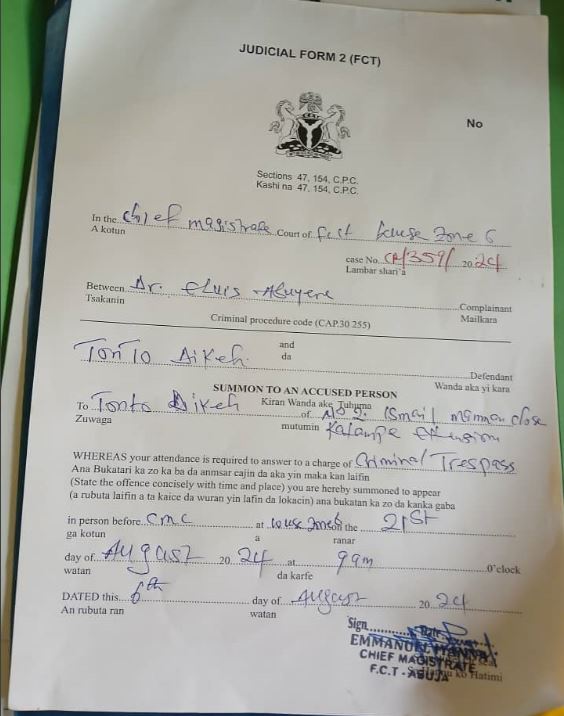 JUDICIAL FORM 2 (FCT)
No
Sections 47, 154, C.P.C.
Kashi na 47, 154, C.P.C.
In the chief magistrate Court of fct wuse zone 6
A kotun
case No. CR/359/ 2024
Lambar shari'a
Between Dr. Elvis Abuyere Complainant
Tsakanin Mailkara
Criminal procedure code (CAP.30 255)
and
da
TonTo Dikeh Defendant
Wanda aka yi kara
SUMMON TO AN ACCUSED PERSON
Kiran Wanda ake Tuhuma
To Tonto Dikeh of No 9. Ismail mamman close
Zuwaga mutumin Katampe extension
WHEREAS your attendance is required to answer to a charge of Criminal Trespass
Ana Bukatari ka zo ka ba da anmsar cajin da aka yin maka kan laifin
(State the offence concisely with time and place) you are hereby summoned to appear
(a rubuta laifin a ta kaice da wuran yin lafin da lokacin) ana bukatan ka zo da kanka gaba
in person before CMC at wuse zone 6 on the 21st
ga kotun a ranar
day of August 2024 at 9am O'clock
watan da karfe
DATED this 6th day of August 2024
An rubuta ran watan
Sign
EMMANUEL
CHIEF MAGISTRATE
F.C.T - ABUJA
ko Hatimi